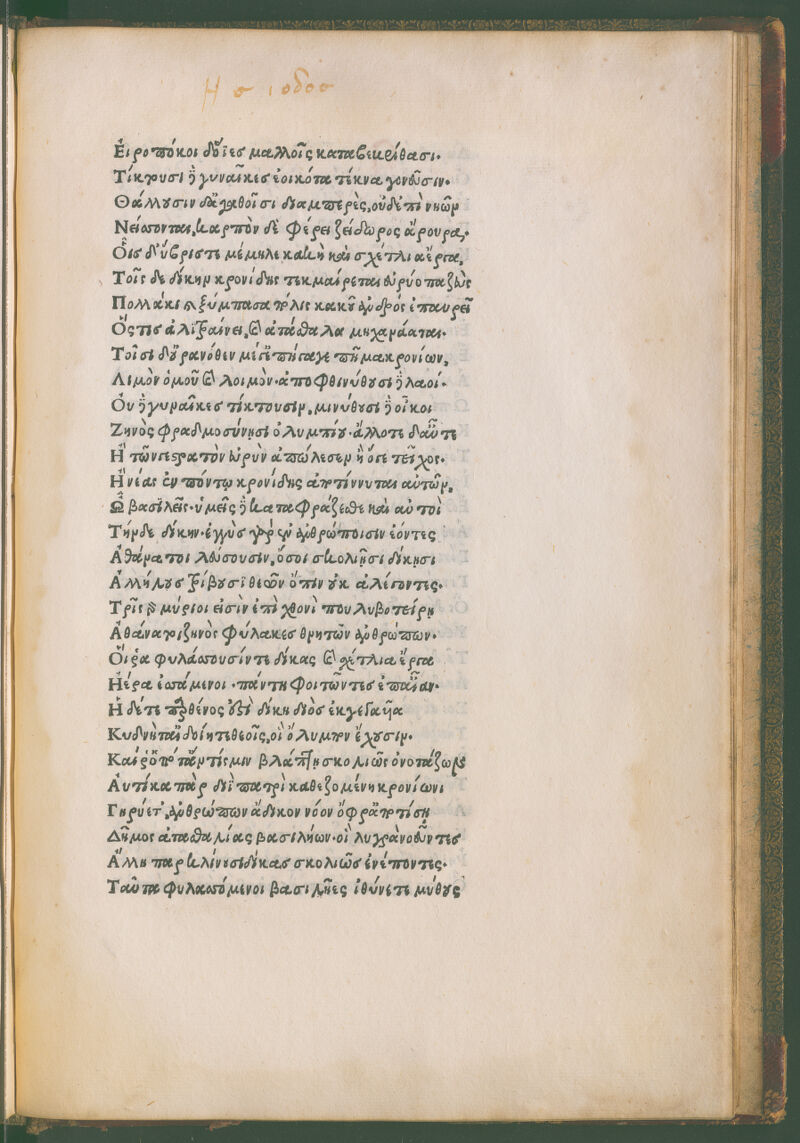 Ησιοδοσ
Εἰροπόκοι δ' ὄϊες μαλλοῖς καταβεβρίθασι.
Τίκτουσι δὲ γυναῖκες ἐοικότα τέκνα γονεῦσιν.
Θάλλουσιν δ' ἀγαθοῖσι διαμπερὲς, οὐδ' ἐπὶ νηῶν
Νείσονται, καρπὸν δὲ φέρει ζείδωρος ἄρουρα,.
Οἷς δ' ὕβρις τε μέμηλε κακὴ καὶ σχέτλια ἔργα,
Τοῖς δὲ δίκην κρονίδης τεκμαίρεται εὐρύοπα ζεὺς
Πολλάκι καὶ ξύμπασα πόλις κακοῦ ἀνδρὸς ἐπαυρεῖ
Ὅς τις ἀλιτραίνει, καὶ ἀτάσθαλα μηχανάαται.
Τοῖσι δ' οὐρανόθεν μέγ' ἐπήγαγε πῆμα κρονίων,
Λιμὸν ὁμοῦ καὶ λοιμὸν. ἀποφθινύθουσι δὲ λαοί.
Οὐδὲ γυναῖκες τίκτουσιν, μινύθουσι δὲ οἶκοι
Ζηνὸς φραδμοσύνησι ὀλυμπίου. ἄλλοτε δ' αὖτε
Ἢ τῶνγε στρατὸν εὐρὺν ἀπώλεσεν ἢ ὅγε τεῖχος.
Ἢ νέας ἐν πόντῳ κρονίδης ἀποτίννυται αὐτῶν,
Ὦ βασιλεῖς. ὑμεῖς δὲ καταφράζεσθε καὶ αὐτοὶ
Τήνδε δίκην. ἐγγὺς γὰρ ἐν ἀνθρώποισιν ἐόντες
Ἀθάνατοι λεύσουσιν, ὅσοι σκολιῇσι δίκησι
Ἀλλήλους τρίβουσι θεῶν ὄπιν οὐκ ἀλέγοντες.
Τρὶς γὰρ μύριοι εἰσὶν ἐπὶ χθονὶ πουλυβοτείρῃ
Ἀθάνατοι ζηνὸς φύλακες θνητῶν ἀνθρώπων.
Οἵ ῥα φυλάσσουσίν τε δίκας καὶ σχέτλια ἔργα
Ἠέρα ἑσσάμενοι. πάντη φοιτῶντες ἐπ' αἶαν.
Ἡ δέ τε παρθένος ἐστὶ δίκη διὸς ἐκγεγαυῖα
Κυδνή τ' αἰδοίη τε θεοῖς, οἳ ὄλυμπον ἔχουσιν.
Καί ῥ' ὁπότ' ἄν τίς μιν βλάπτῃ σκολιῶς ὀνοτάζων
Αὐτίκα πὰρ διῒ πατρὶ καθεζομένη κρονίωνι
Γηρύετ' ἀνθρώπων ἄδικον νόον ὄφρ' ἀποτίσῃ
Δῆμος ἀτασθαλίας βασιλήων. οἳ λυγρὰ νοεῦντες
Ἄλλῃ παρκλίνωσι δίκας σκολιῶς ἐνέποντες.
Ταῦτα φυλασσόμενοι βασιλῆες ἰθύνετε μύθους